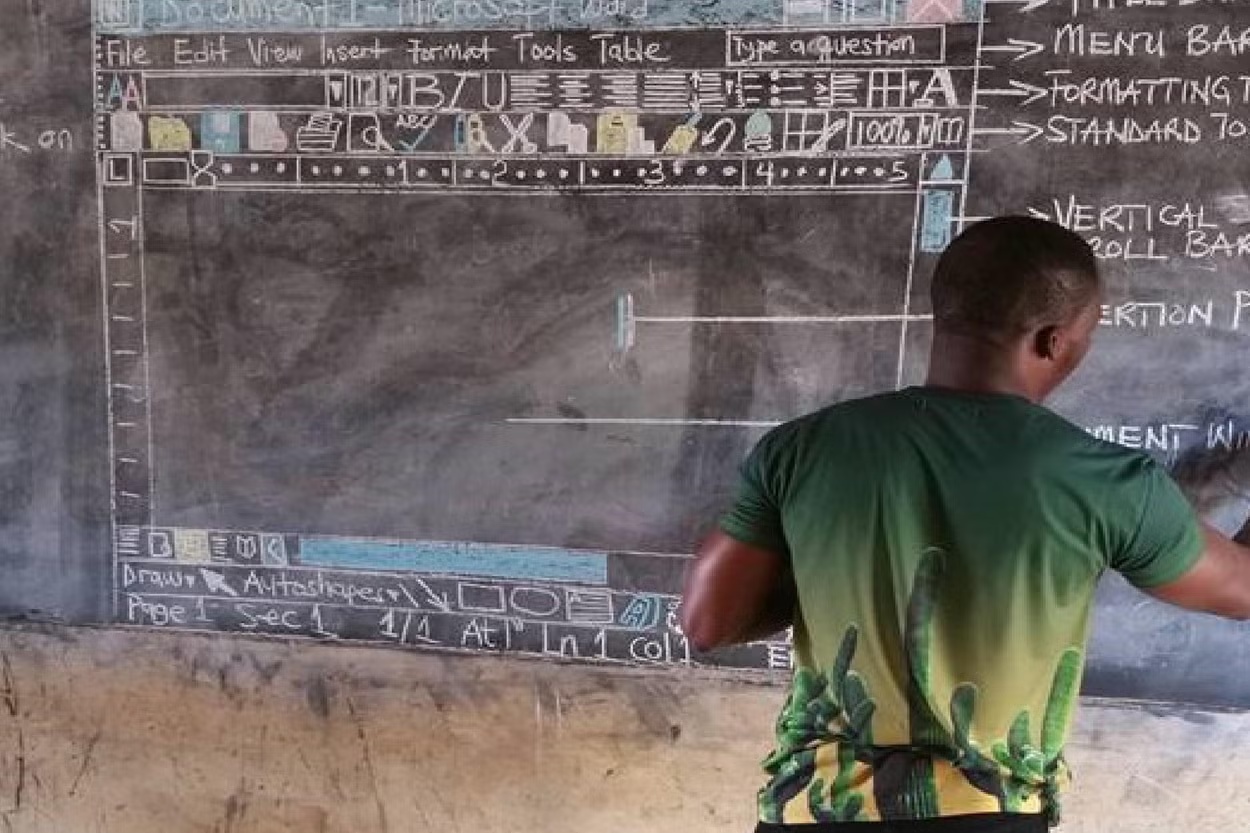 Document 1 - Microsoft Word
File Edit View Insert Format Tools Table Type a question
MENU BAR
AA B I U A
FORMATTING T
ABC 100%
STANDARD TO
k on
L 1 2 3 4 5
VERTICAL
ROLL BAR
ERTION P
MENT W
Draw Autoshapes A
Page 1 Sec 1 1/1 At 1" Ln 1 Col 1